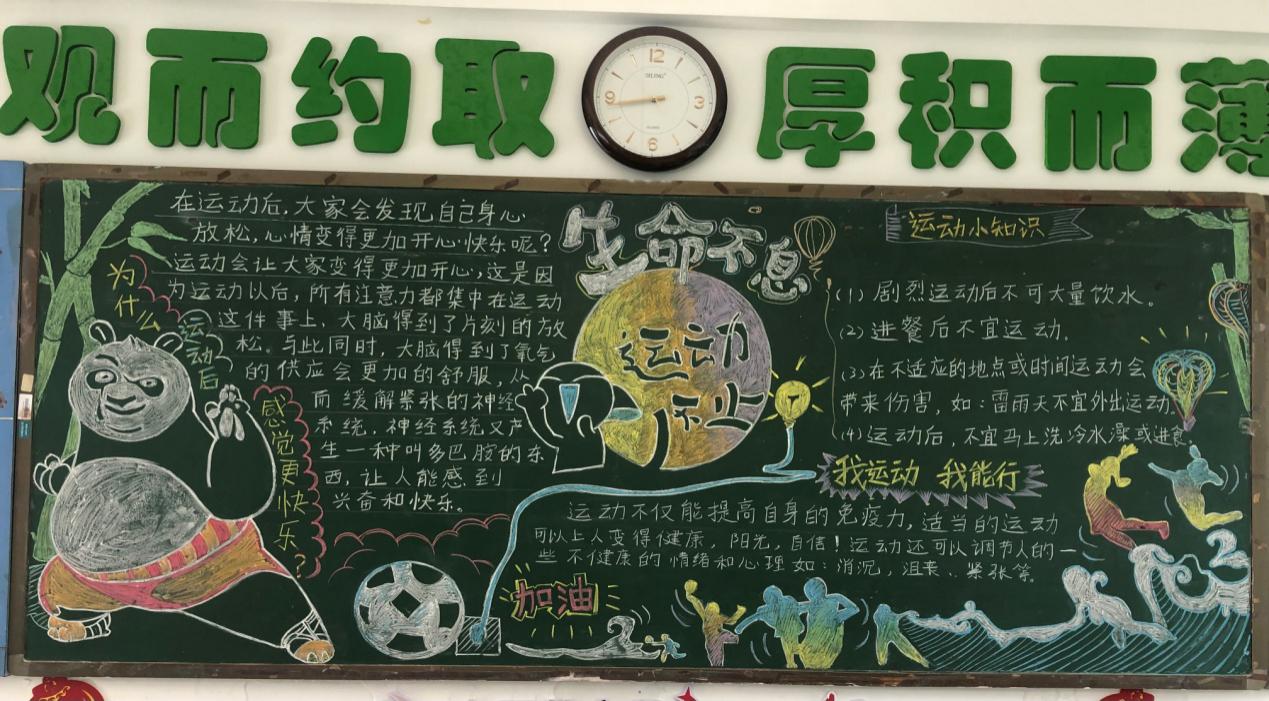 观而约取
厚积而薄
12
3
6
9
在运动后,大家会发现自己身心
放松,心情变得更加开心快乐呢?
运动会让大家变得更加开心,这是因
为运动以后,所有注意力都集中在运动
这件事上,大脑得到了片刻的放
松。与此同时,大脑得到了氧气
的供应会更加的舒服,从
而缓解紧张的神经
系统,神经系统又产
生一种叫多巴胺的东
西,让人能感到
兴奋和快乐。
为什么
运动后
感觉更快乐?
生命不息
运动不止
运动小知识
(1)剧烈运动后不可大量饮水。
(2)进餐后不宜运动.
(3)在不适应的地点或时间运动会
带来伤害,如:雷雨天不宜外出运动.
(4)运动后,不宜马上洗冷水澡或进食.
我运动 我能行
运动不仅能提高自身的免疫力,适当的运动
可以上人变得健康,阳光,自信!运动还可以调节人的一
些不健康的情绪和心理如:消沉,沮丧、紧张等.
加油